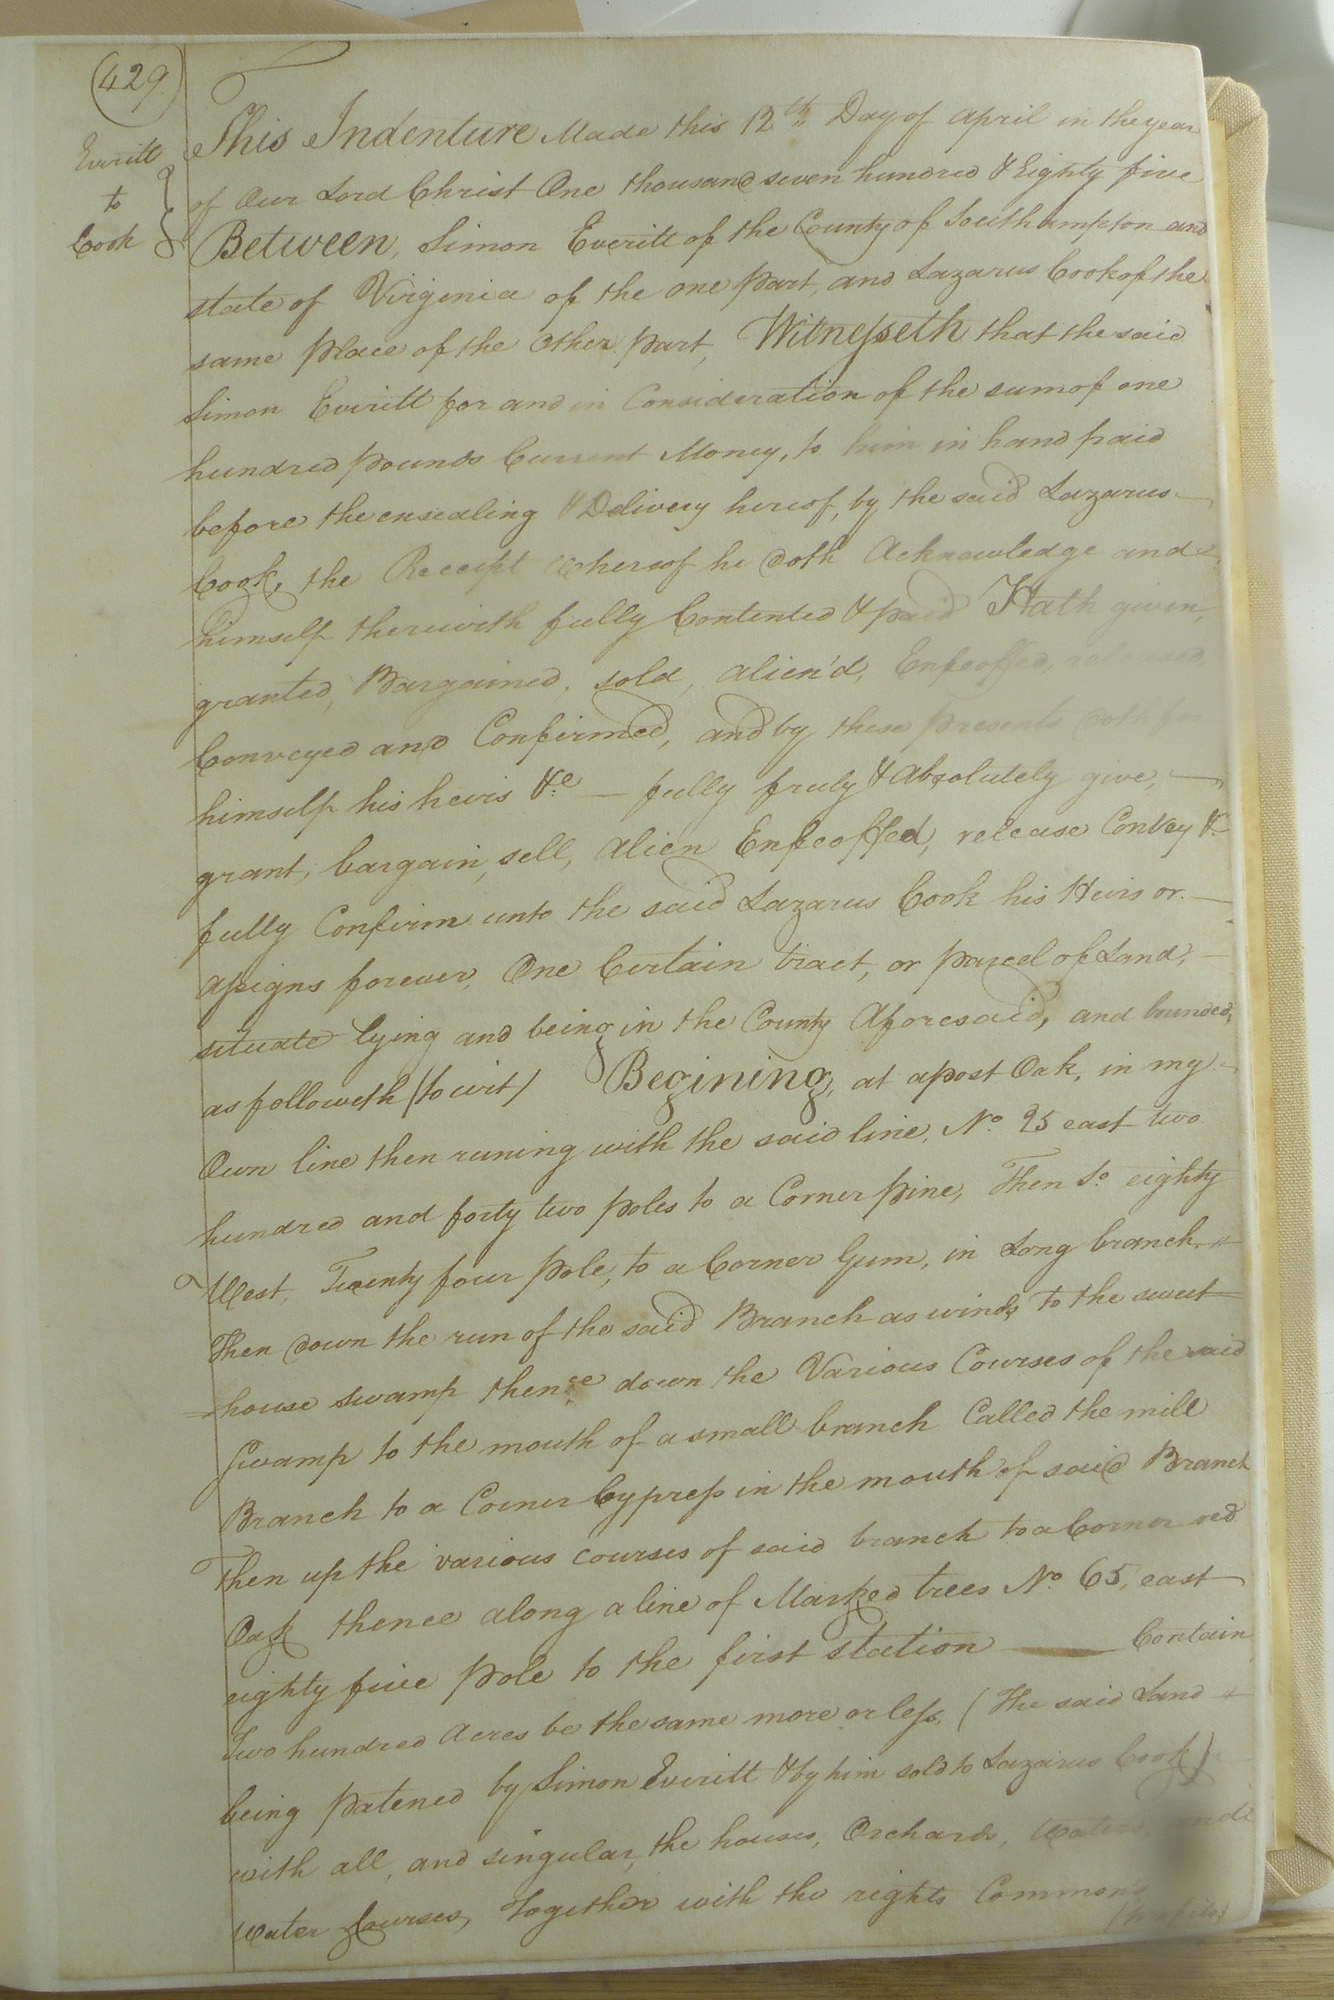 429.
Everitt
to
Cook
This Indenture Made this 12th Day of April in the year
of Our Lord Christ One thousand seven hundred & Eighty five
Between, Simon Everitt of the County of Southampton and
state of Virginia of the one part, and Lazarus Cook of the
same place of the Other part, Witnesseth that the said
Simon Everitt for and in Consideration of the sum of one
hundred pounds Current Money, to him in hand paid
before the ensealing & Delivery hereof, by the said Lazarus
Cook, the Receipt whereof he doth Acknowledge and
himself therewith fully Contented & paid Hath given,
granted, Bargained, sold, alien'd, Enfeoffed, released,
Conveyed and Confirmed, and by these presents doth for
himself his heirs &c — fully fruly & Absolutely give, —
grant, bargain, sell, Alien Enfeoffed, release Convey &
fully Confirm unto the said Lazarus Cook his Heirs or —
assigns forever, One Certain tract, or parcel of Land, —
situate lying and being in the County Aforesaid, and bounded,
as followeth (to wit) Begining, at a post Oak, in my
Own line then runing with the said line, No. 25 east two
hundred and forty two poles to a Corner pine, Then So. eighty
West, Twenty four pole, to a Corner Gum, in Long branch,
Then down the run of the said Branch as winds to the sweet
=house swamp thence down the Various Courses of the said
Swamp to the mouth of a small branch Called the mill
Branch to a Corner Cypress in the mouth of said Branch
Then up the various courses of said branch to a Corner red
Oak thence along a line of Marked trees No. 65, east
eighty five pole to the first station — Contain
Two hundred Acres be the same more or less, (The said Land
being patened by Simon Everitt & by him sold to Lazarus Cook)
with all, and singular, the houses, Orchards, Waters, and
Water Courses, Together with the rights Commons